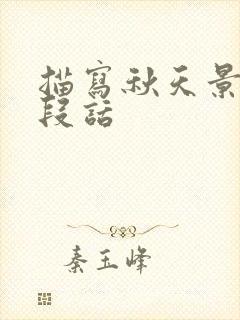 描寫秋天景
段話
秦玉峰